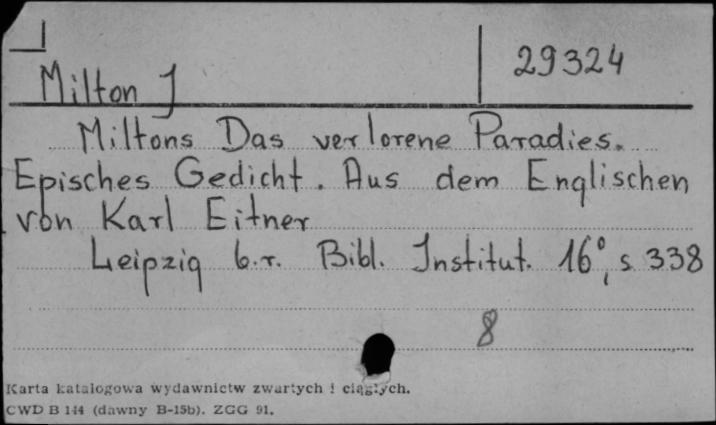 29324
Milton J
Miltons Das verlorene Paradies.
Episches Gedicht. Aus dem Englischen
von Karl Eitner
Leipzig b.r. Bibl. Institut. 16°, s 338
8
Karta katalogowa wydawnictw zwartych i ciągłych.
CWD B 144 (dawny B-15b). ZGG 91.